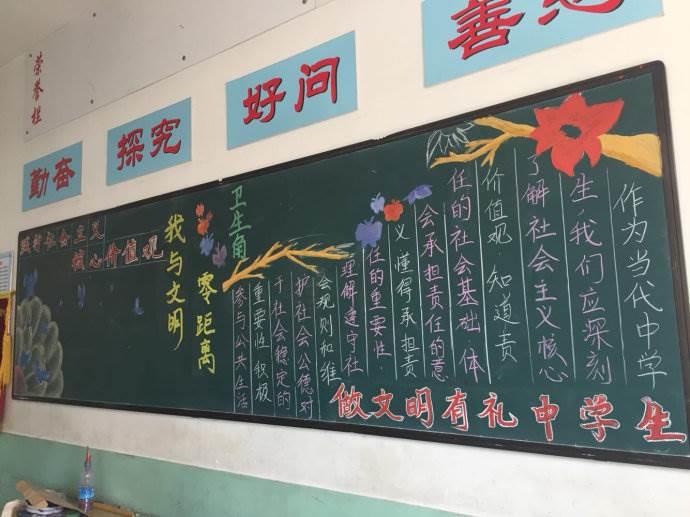 荣誉栏
勤奋
探究
好问
善思
践行社会主义
核心价值观
我与文明
零距离
卫生角
作为当代中学
生,我们应深刻
了解社会主义核心
价值观,知道责
任的社会基础,体
会承担责任的意
义懂得承担责
任的重要性,
理解遵守社
会规则和维
护社会公德对
于社会稳定的
重要性,积极
参与公共生活
做文明有礼中学生